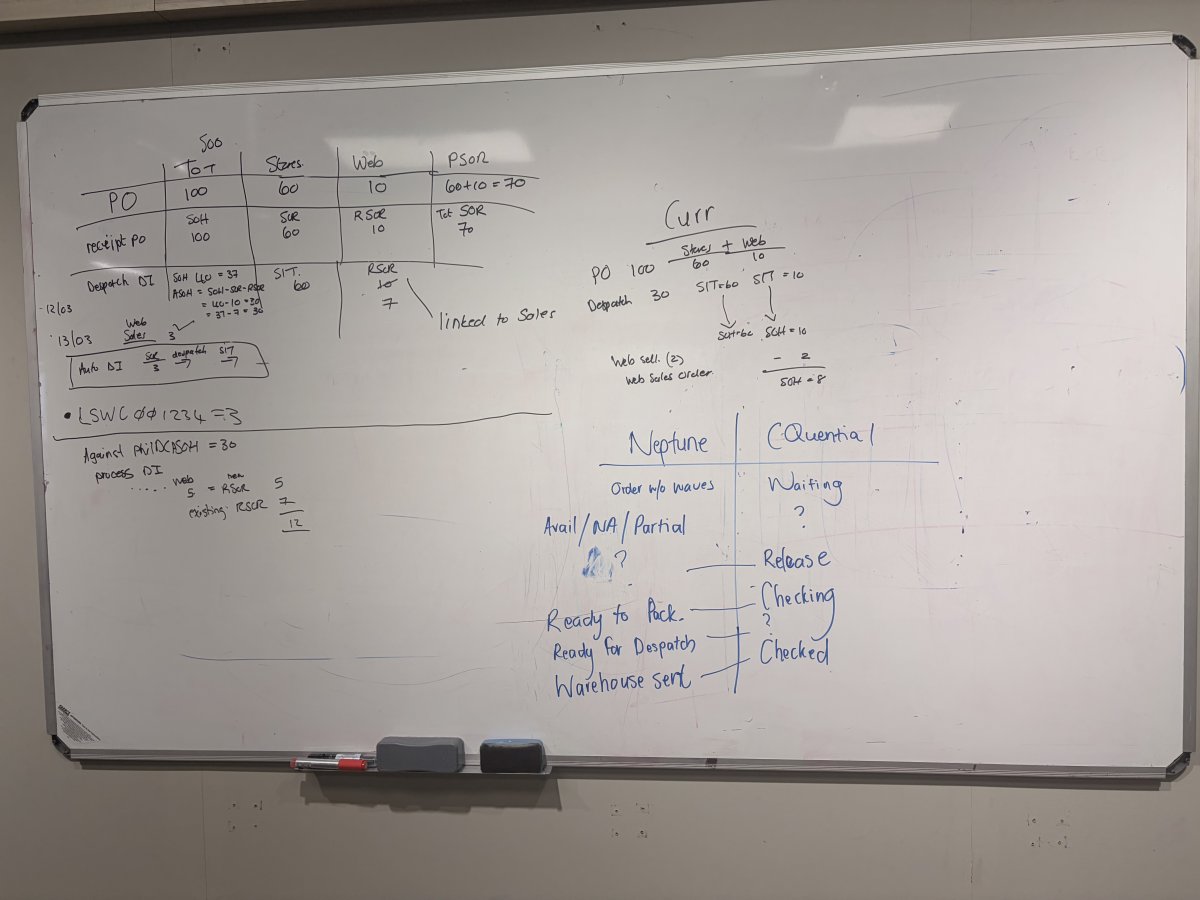 500
TOT Stores. Web PSOR
PO 100 60 10 60+10 = 70
SOH SOR RSOR Tot SOR
receipt PO 100 60 10 70
Despatch DI SOH 40 = 37 SIT. RSOR
ASOH = SOH-SOR-RSOR 60 10
= 40-10 = 30 7
= 37-7 = 30
linked to Sales
-12/03
13/03 Web Sales 3 ✓
Auto DI SOR 3 despatch → SIT →
• LSWC001234 = 3
Against philDC ASOH = 30
process DI
..... web new
5 = RSOR 5
existing RSOR 7
12
Curr
Stores + Web
PO 100 60 10
Despatch 30 SIT=60 SIT = 10
SOH=60 SOH = 10
Web sell. (2) - 2
Web Sales order.
SOH = 8
Neptune CQuential
Order w/o waves Waiting
?
Avail/NA/Partial
?
Release
Ready to Pack. Checking
?
Ready for Despatch
Warehouse sent Checked